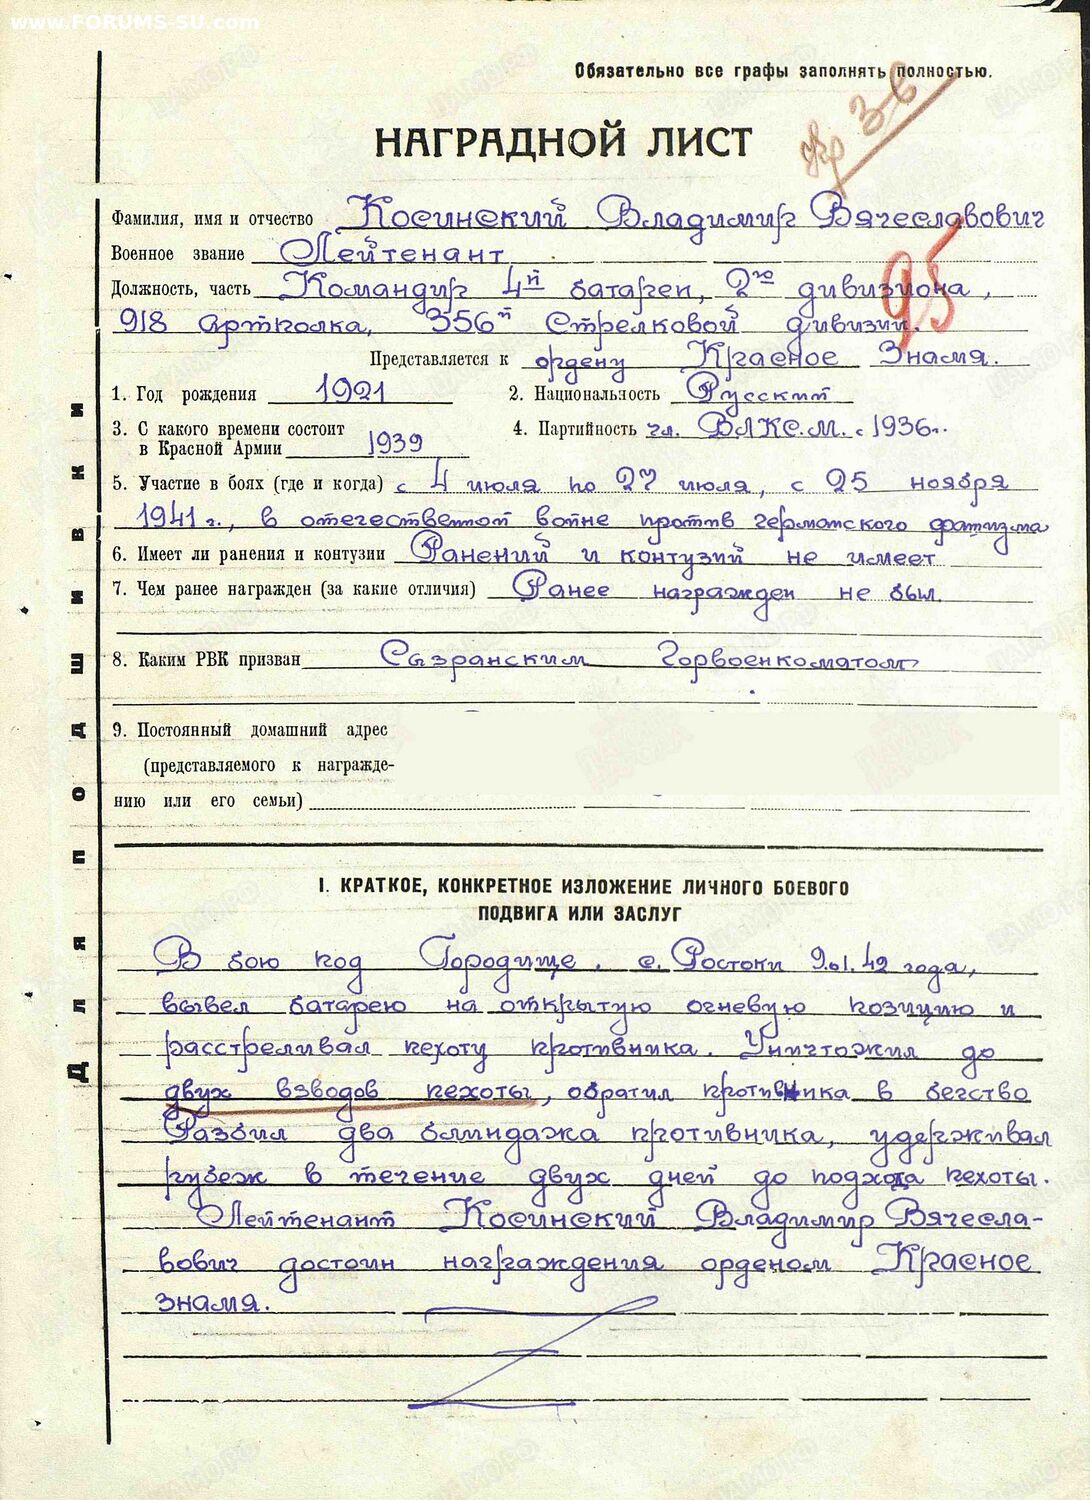 www.FORUMS-SU.com
Обязательно все графы заполнять полностью.
НАГРАДНОЙ ЛИСТ
Кр З-в
Фамилия, имя и отчество Косинский Владимир Вячеславович
Военное звание Лейтенант
95
Должность, часть Командир 4й батареи, 2го дивизиона,
918 артполка, 356й Стрелковой дивизии.
Представляется к ордену Красное Знамя.
1. Год рождения 1921 2. Национальность Русский
3. С какого времени состоит
в Красной Армии 1939 4. Партийность чл. ВЛКСМ. с 1936г.
5. Участие в боях (где и когда) с 4 июля по 27 июля, с 25 ноября
1941 г., в отечественной войне против германского фашизма
6. Имеет ли ранения и контузии Ранений и контузий не имеет
7. Чем ранее награжден (за какие отличия) Ранее награжден не был.
8. Каким РВК призван Сызранским Горвоенкоматом
9. Постоянный домашний адрес
(представляемого к награжде-
нию или его семьи)
I. КРАТКОЕ, КОНКРЕТНОЕ ИЗЛОЖЕНИЕ ЛИЧНОГО БОЕВОГО
ПОДВИГА ИЛИ ЗАСЛУГ
В бою под Городище. с. Ростоки 9.01.42 года,
вывел батарею на открытую огневую позицию и
расстреливал пехоту противника. Уничтожил до
двух взводов пехоты, обратил противника в бегство
Разбил два блиндажа противника, удерживал
рубеж в течение двух дней до подхода пехоты.
Лейтенант Косинский Владимир Вячесла-
вович достоин награждения орденом Красное
знамя.
Для подшивки